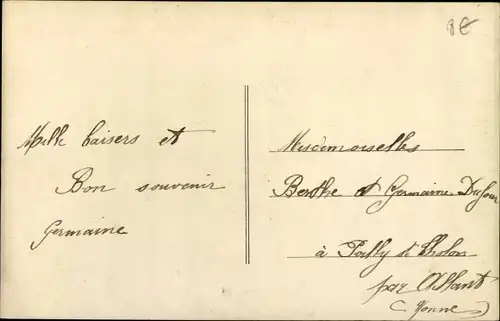 8€
Mille baisers et
Bon souvenir
Germaine
Mesdemoiselles
Berthe et Germaine Dufour
à Poilly s/ Tholon
par Aillant
(Yonne)